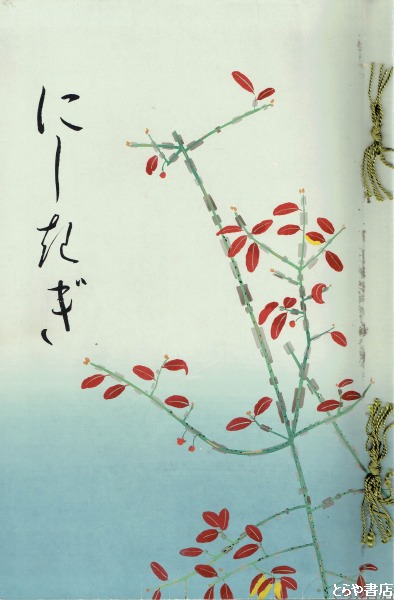 にしきぎ
とらや書店